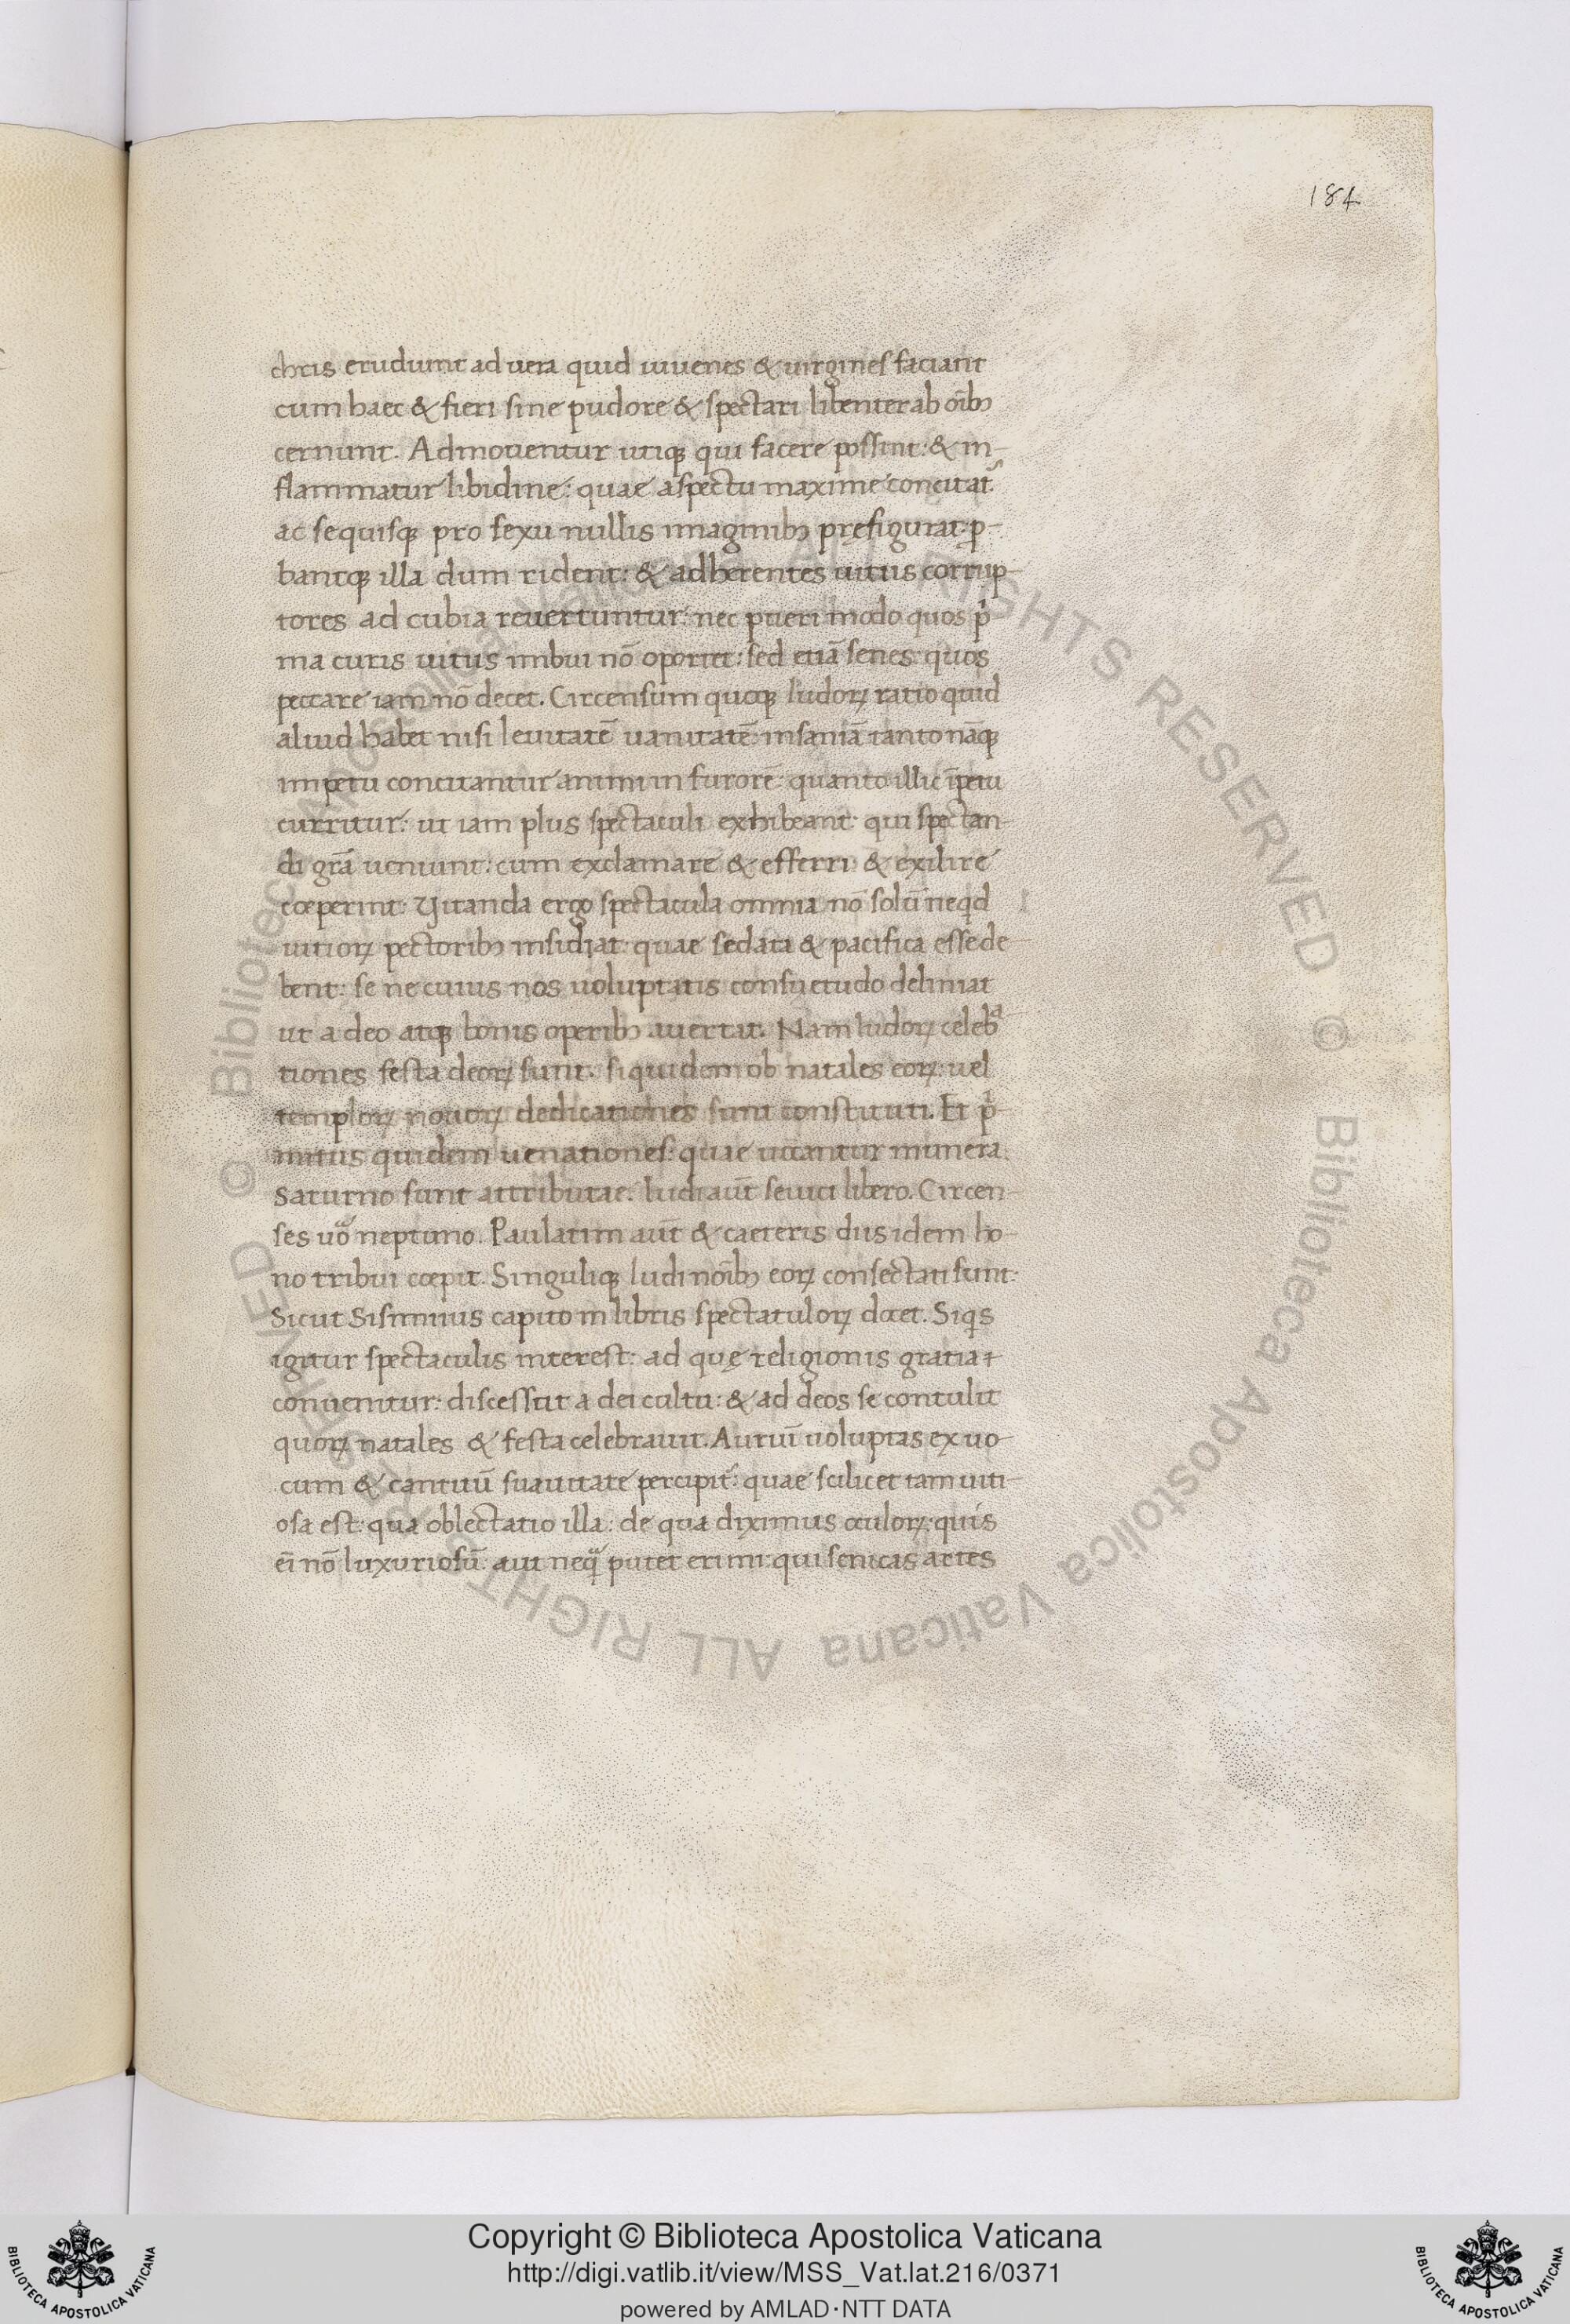 184
chris erudiunt ad uera quid iuuenes & uirgines faciant
cum haec & fieri sine pudore & spectari libenter ab oībꝫ
cernunt. Admouentur utiqꝫ qui facere possint: & in-
flammatur libidine: quae aspectu maxime concitat᷑
ac se quisqꝫ pro sexu nullis imaginibꝫ pręfigurat: ꝓ-
bantqꝫ illa dum rident: & adherentes uitiis corrup-
tores ad cubia reuertuntur: nec pueri modo quos p̍
ma curis uitiis imbui nō oportet: sed etiā senes quos
peccare iam nō decet. Circensium quoqꝫ ludoꝝ ratio quid
aliud habet nisi leuitatē uanitatē: insaniā tanto nāqꝫ
impetu concitantur animi in furorē: quanto illic īpetu
curritur: ut iam plus spectaculi exhibeant: qui spectan-
di grā ueniunt: cum exclamare & efferri & exilire
cœperint: Vitanda ergo spectacula omnia nō solū ne qd
uitioꝝ pectoribꝫ insidiat: quae sedata & pacifica esse de-
bent: se ne cuius nos uoluptatis consuetudo deliniat
ut a deo atqꝫ bonis operibꝫ auertat. Nam ludoꝝ celebª
tiones festa deoꝝ sunt. siquidem ob natales eoꝝ: uel
temploꝝ nouoꝝ dedicationes sunt constituti. Et p̍-
mitus quidem uenationes: quae uocantur munera
Saturno sunt attributae. ludi aūt scuici libero. Circen-
ses uº neptuno. Paulatim aūt & caeteris diis idem ho-
no tribui cœpit. Singuliqꝫ ludi noībꝫ eoꝝ consectati sunt:
Sicut Sisinnius capito in libris spectatuloꝝ docet. Siqs
igitur spectaculis interest: ad quę religionis gratia +
conuenitur: discessit a dei cultu: & ad deos se contulit
quoꝝ natales & festa celebrauit. Auriū uoluptas ex uo-
cum & cantuū suauitate percipit᷑: quae scilicet tam uiti-
osa est: qua oblectatio illa: de qua diximus oculoꝝ: quis
eī nō luxuriosū aut neqª putet erimi: qui scenicas artes
Copyright © Biblioteca Apostolica Vaticana
http://digi.vatlib.it/view/MSS_Vat.lat.216/0371
powered by AMLAD·NTT DATA